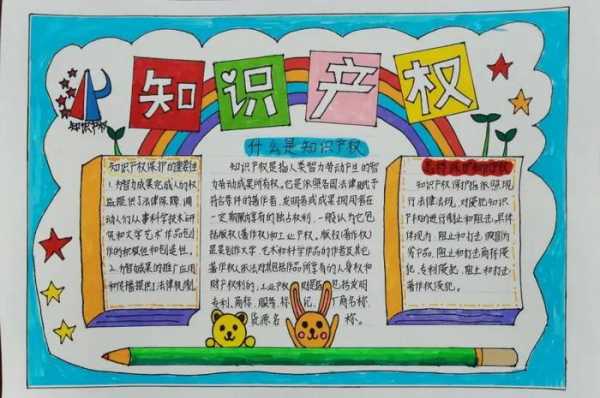 知识产权
知识产权
什么是知识产权
知识产权保护的重要性
1.为智力成果完成人的权
益提供了法律保障,调
动人们从事科学技术研
究和文学艺术作品创
作的积极性和创造性。
2.为智力成果的推广应用
和传播提供了法律机制
知识产权是指人类智力劳动产生的智
力劳动成果所有权。它是依照各国法律赋予
符合条件的著作者、发明者或成果拥有者在
一定期限内享有的独占权利,一般认为它包
括版权(著作权)和工业产权。版权(著作权)
是指创作文学、艺术和科学作品的作者及其他
著作权人依法对其作品所享有的人身权和
财产权利的,工业产权包括发明
专利、商标、服务标记、厂商名称、
货源名称。
知识产权
知识产权保护指依照现
行法律法规,对侵犯知识
产权的进行制止和打击,具体
体现为,阻止和打击假冒伪
劣产品,阻止和打击商标侵
犯、专利侵犯,阻止和打击
著作权侵犯。